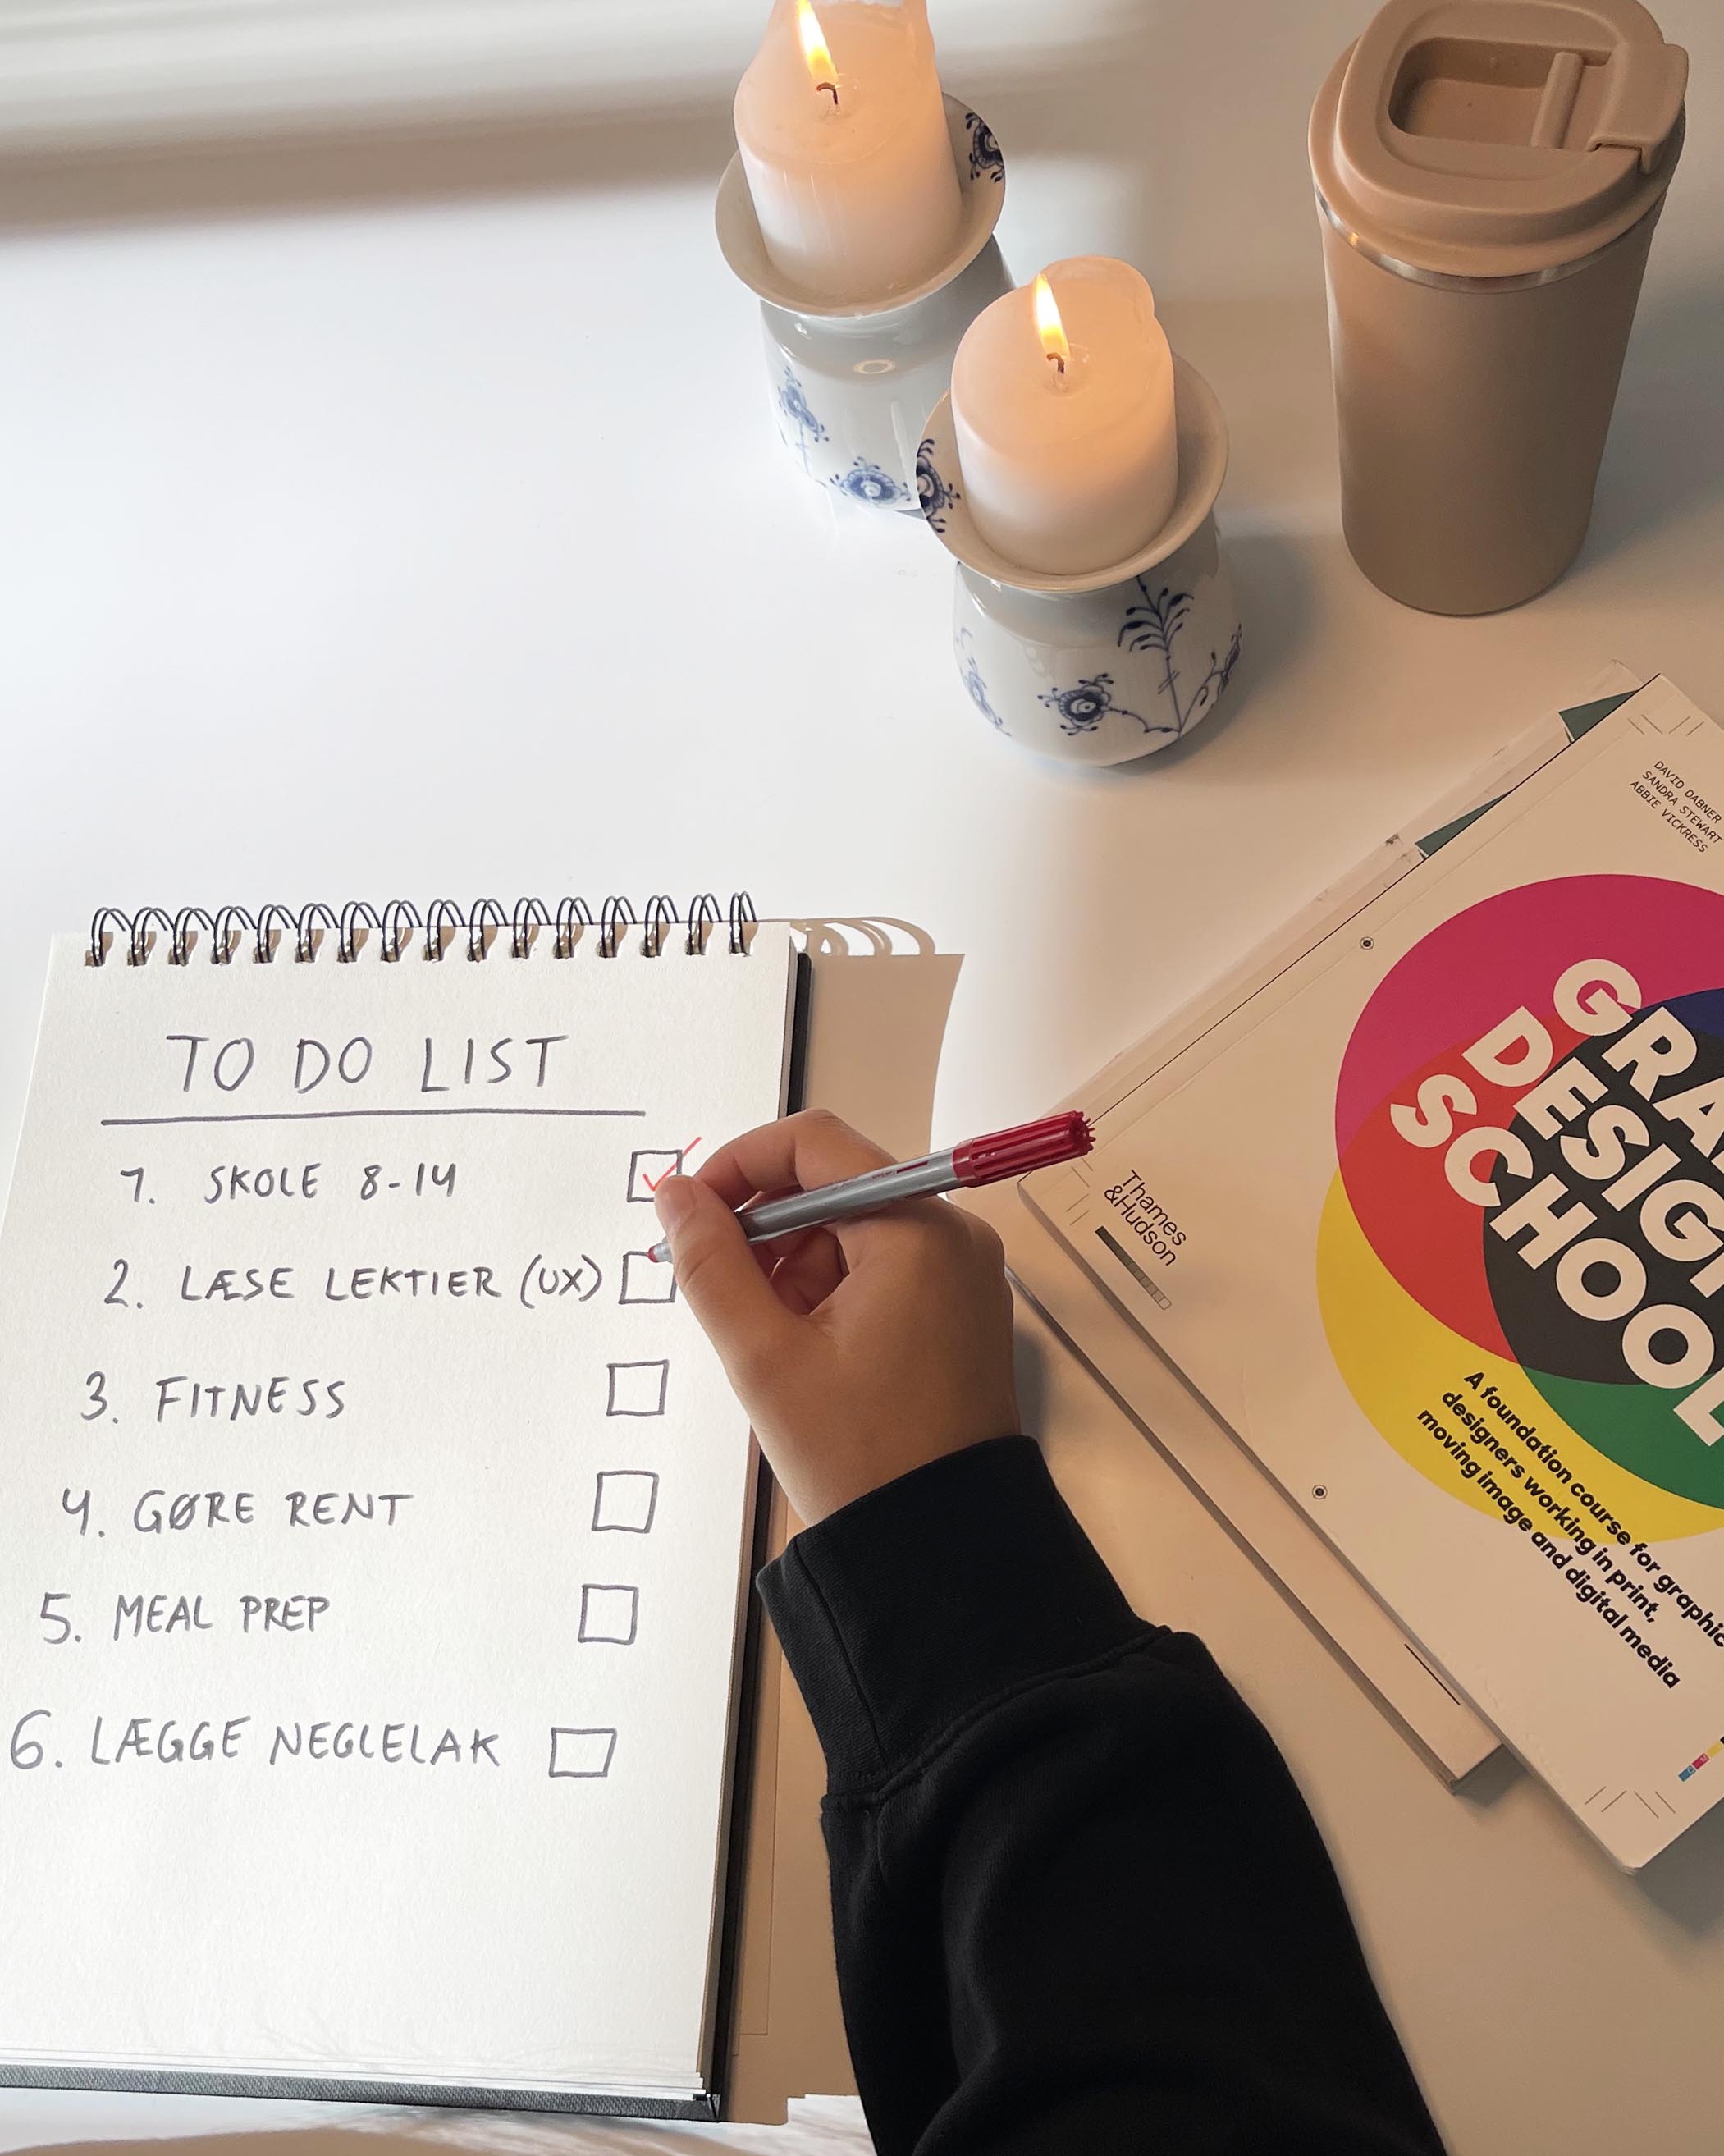 TO DO LIST
1. SKOLE 8-14
2. LÆSE LEKTIER (UX)
3. FITNESS
4. GØRE RENT
5. MEAL PREP
6. LÆGGE NEGLELAK
DAVID DABNER
SANDRA STEWART
ABBIE VICKRESS
GRA
DESIG
SCHOOL
A foundation course for graphic
designers working in print,
moving image and digital media
Thames
&Hudson